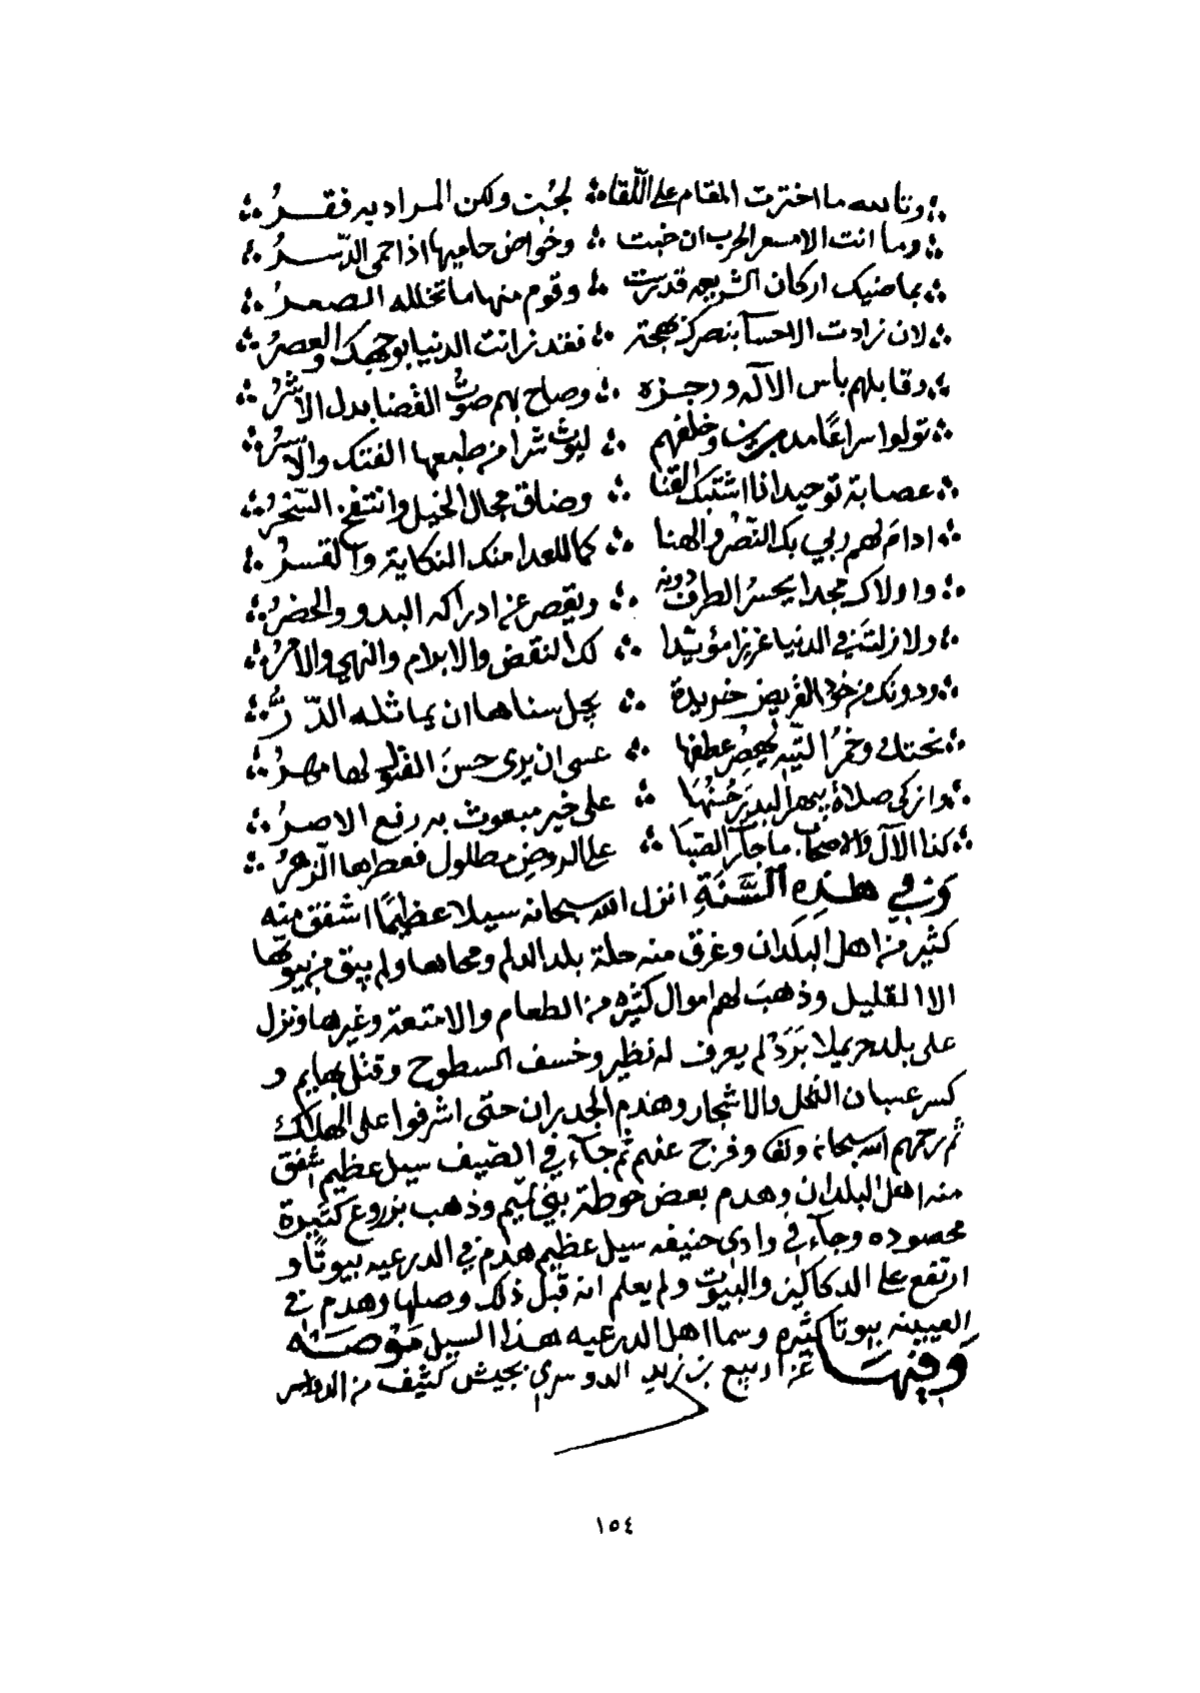 وتالله ما اخترت المقام على اللقاء ؞ لجبت ولكن المراد به فقرُ ؞
وما انت الا مسعر الحرب ان خبت ؞ وخواض حاميها اذا حمي الدسرُ ؞
بماضيك اركان الشريعه قد رست ؞ وقوم منها ما تخلله الصعرُ ؞
لان زادت الاحسآ بنصرك بهجة ؞ فقد زانت الدنيا بوجهك والعصرُ ؞
وقابلهم باس الاله ورجزه ؞ وصاح بهم صوتُ القضا بدل الاشرُ ؞
تولوا سراعًا مدبرين وخلفهم ؞ ليوث شرا من طبعها الفتك والاسرُ ؞
عصابة توحيد اذا اشتبك القنا ؞ وضاق مجال الخيل وانتفخ السّحرُ ؞
ادامَ لهم ربي بك النّصرُ والهنا ؞ كما للعدا منك النكاية والقسرُ ؞
واولاك مجدا يحسرُ الطرف دونه ؞ ويقصر عن ادراكه البدو والحضرُ ؞
ولا زلت في الدنيا عزيزا مؤيدا ؞ لك النقض والابرام والنهي والامرُ ؞
ودونك من خود القريض خريدة ؞ يجل سناها ان يماثله الدّرُّ ؞
نحتك وخمرُ التيه يهصرُ عطفها ؞ عسى ان يرى حسنَ القبول لها مهرُ ؞
وازكى صلاة يبهر البدر حُسنُهَا ؞ على خير مبعوث به رفع الاصرُ ؞
كذا الآل والاصحاب ما جآ الصّبَا ؞ على الروضِ مطلول فعطرها الزّهرُ ؞
وفي هذه السَّنَةِ انزل الله سبحانه سيلا عظيمًا اشفق منه
كثير من اهل البلدان وغرق منه حلة بلد الدلم ومحاها ولم يبق من بيوتها
الا القليل وذهبَ لهم اموال كثيره من الطعام والامتعة وغيرها ونزل
على بلد حريملا بَرَدْ لم يعرف له نظير وخسف السطوح وقتل بهايم و
كسر عسبان النخل والاشجار وهدم الجدران حتى اشرفوا على الهلاك
ثم رحمهم الله سبحانه وتعالى وفرج عنهم ثم جآء في الصّيف سيل عظيم اشفق
منه اهل البلدان وهدم بعض حوطة بني تميم وذهب بزروع كثيرة
محصوده وجآء في وادي حنيفه سيل عظيم هدم في الدرعيه بيوتًا و
ارتفع على الدكاكين والبيوت ولم يعلم انه قبل ذلك وصلها وهدم في
العيينه بيوتا كثيره وسما اهل الدرعيه هذا السيل موصَّه
وفيهَا غزا ربيع بن زيد الدوسري بجيش كثيف من الدواسر
١٥٤